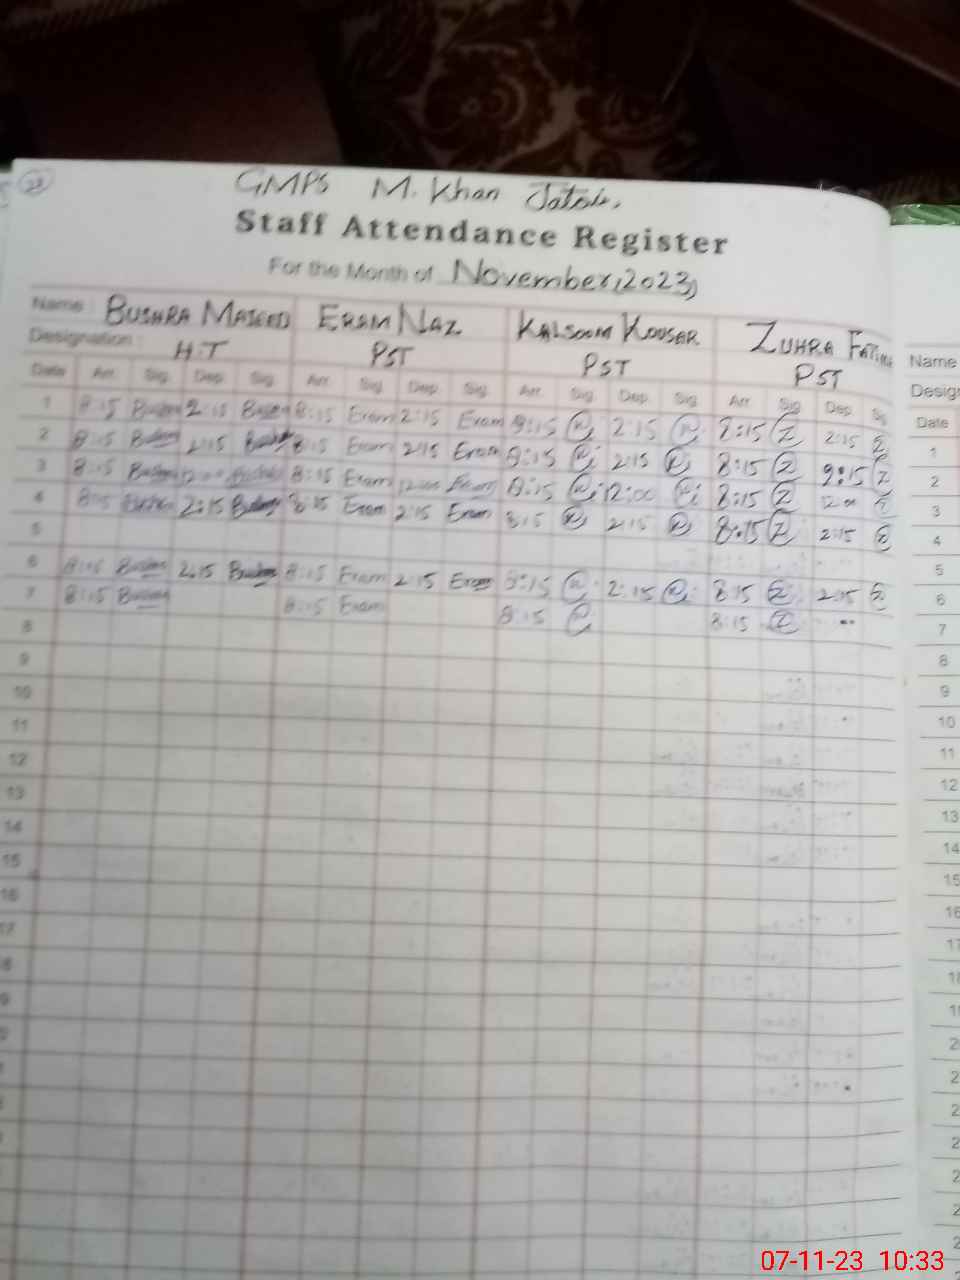 23
GMPS M. Khan Jatoi.
Staff Attendance Register
For the Month of November, 2023)
Name : BUSHRA MAJEED ERAM NAZ KALSOOM KOUSAR ZUHRA FATIMA
Designation : H.T PST PST PST
Date Arr. Sig. Dep. Sig. Arr. Sig. Dep. Sig. Arr. Sig. Dep. Sig. Arr. Sig. Dep. Sig.
1 8:15 Bushra 2:15 Bushra 8:15 Eram 2:15 Eram 8:15 2:15 8:15 Z 2:15 Z
2 8:15 Bushra 2:15 Bushra 8:15 Eram 2:15 Eram 8:15 2:15 8:15 Z 2:15 Z
3 8:15 Bushra 12:00 Bushra 8:15 Eram 12:00 Eram 8:15 12:00 8:15 Z 12:00 Z
4 8:15 Bushra 2:15 Bushra 8:15 Eram 2:15 Eram 8:15 2:15 8:15 Z 2:15 Z
5
6 8:15 Bushra 2:15 Bushra 8:15 Eram 2:15 Eram 8:15 2:15 8:15 Z 2:15 Z
7 8:15 Bushra 8:15 Eram 8:15 8:15 Z
8
9
10
11
12
13
14
15
16
17
Name
Desig
Date
1
2
3
4
5
6
7
8
9
10
11
12
13
14
15
16
07-11-23 10:33